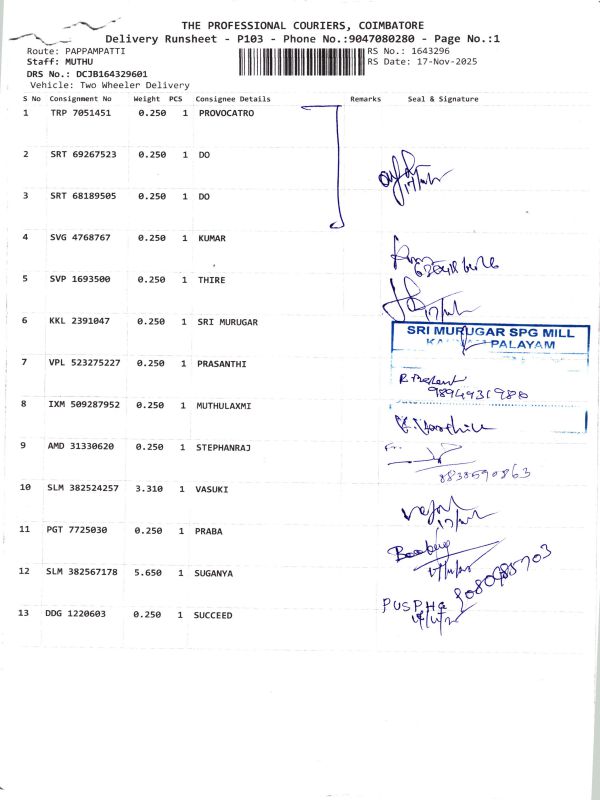 THE PROFESSIONAL COURIERS, COIMBATORE
Delivery Runsheet - P103 - Phone No.:9047080280 - Page No.:1
Route: PAPPAMPATTI
RS No.: 1643296
Staff: MUTHU
RS Date: 17-Nov-2025
DRS No.: DCJB164329601
Vehicle: Two Wheeler Delivery
S No Consignment No Weight PCS Consignee Details Remarks Seal & Signature
1 TRP 7051451 0.250 1 PROVOCATRO
2 SRT 69267523 0.250 1 DO
3 SRT 68189505 0.250 1 DO
4 SVG 4768767 0.250 1 KUMAR
5 SVP 1693500 0.250 1 THIRE
6 KKL 2391047 0.250 1 SRI MURUGAR
SRI MURUGAR SPG MILL
PALAYAM
7 VPL 523275227 0.250 1 PRASANTHI
9894931980
8 IXM 509287952 0.250 1 MUTHULAXMI
9 AMD 31330620 0.250 1 STEPHANRAJ
8838590863
10 SLM 382524257 3.310 1 VASUKI
11 PGT 7725030 0.250 1 PRABA
12 SLM 382567178 5.650 1 SUGANYA
PUSPHA
13 DDG 1220603 0.250 1 SUCCEED